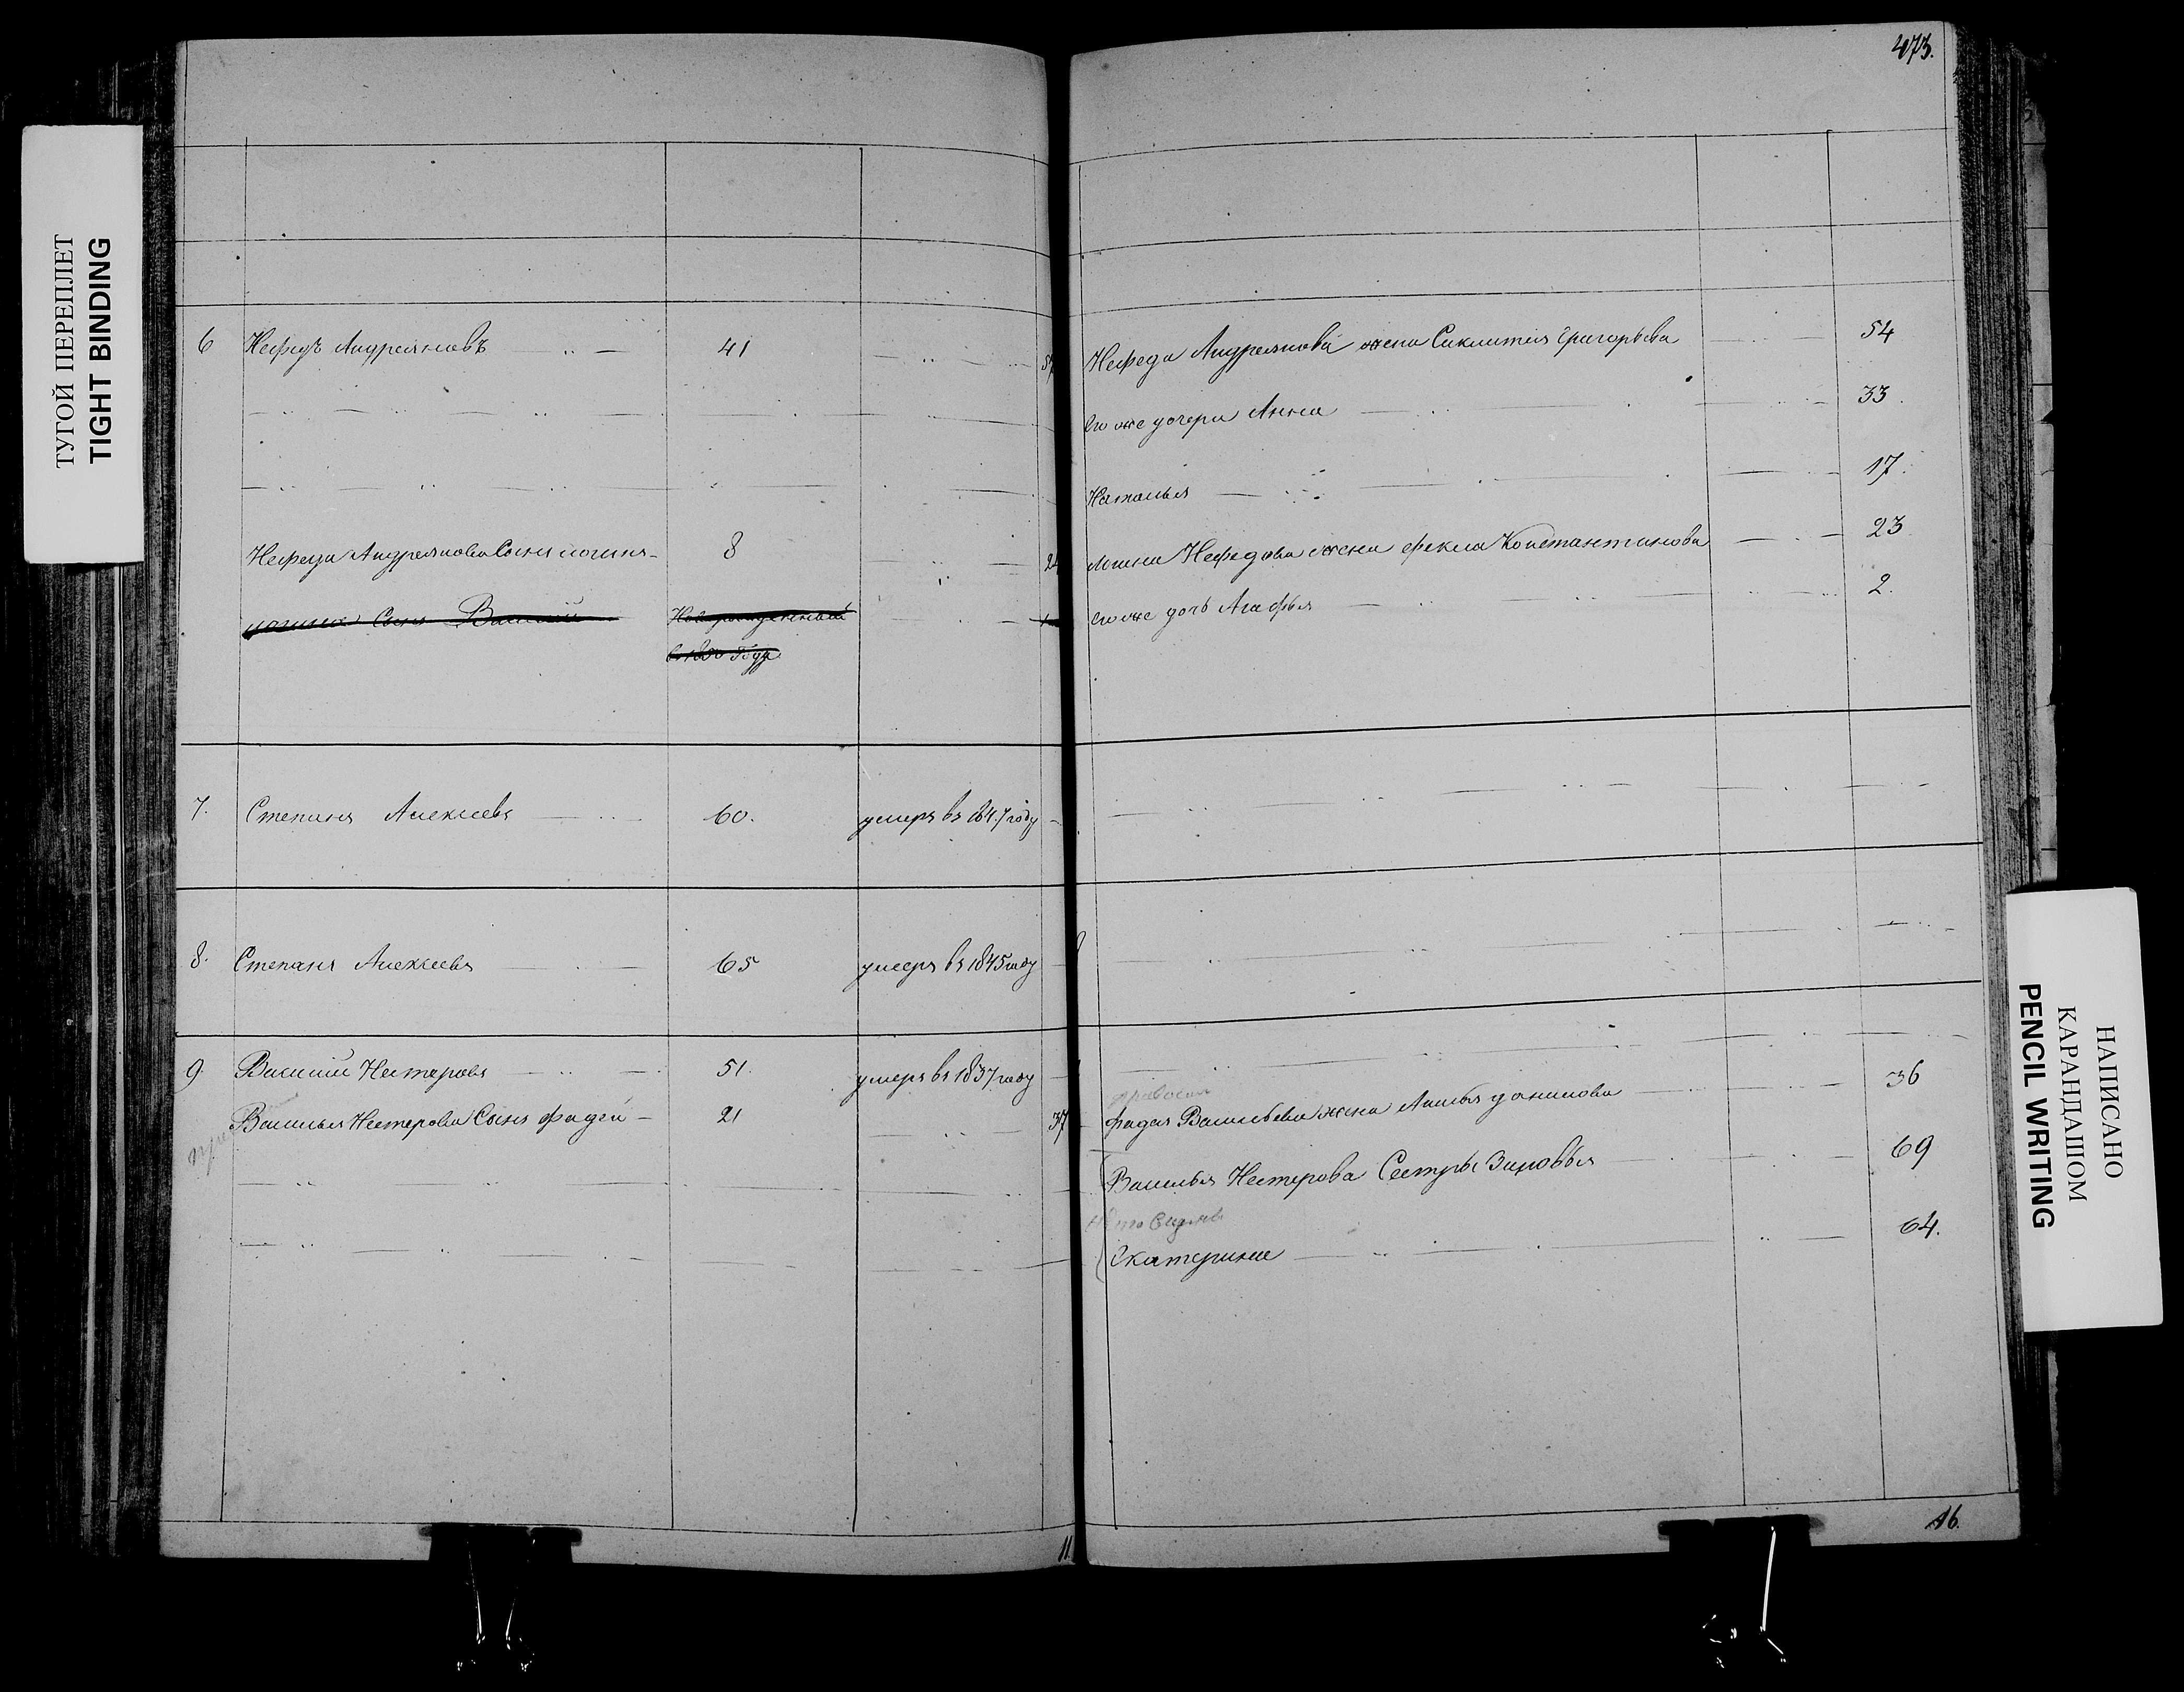 473.
ТУГОЙ ПЕРЕПЛЕТ
TIGHT BINDING
6 Нефедъ Андреяновъ 41 57
Нефеда Андреянова Сынъ логинъ 8 24
логина Сынъ Василий Новорожденный
в 1850 Году
7. Степанъ Алексеевъ 60. умеръ въ 1847 году
8. Степанъ Алексеевъ 65 умеръ въ 1845 году
9. Василий Нестеровъ 51. умеръ въ 1837 году
Василья Нестерова Сынъ фадей 21 37
11
Нефеда Андреянова жена Сиклитея Григорьева 54
Его же дочери Анна 33.
Наталья 17.
логина Нефедова жена фекла Константинова 23
Его же дочь Агафья 2.
фадея Васильева жена данилова 36
Василья Нестерова Сестры Зиновья 69
Екатерина 64.
16.
НАПИСАНО
КАРАНДАШОМ
PENCIL WRITING